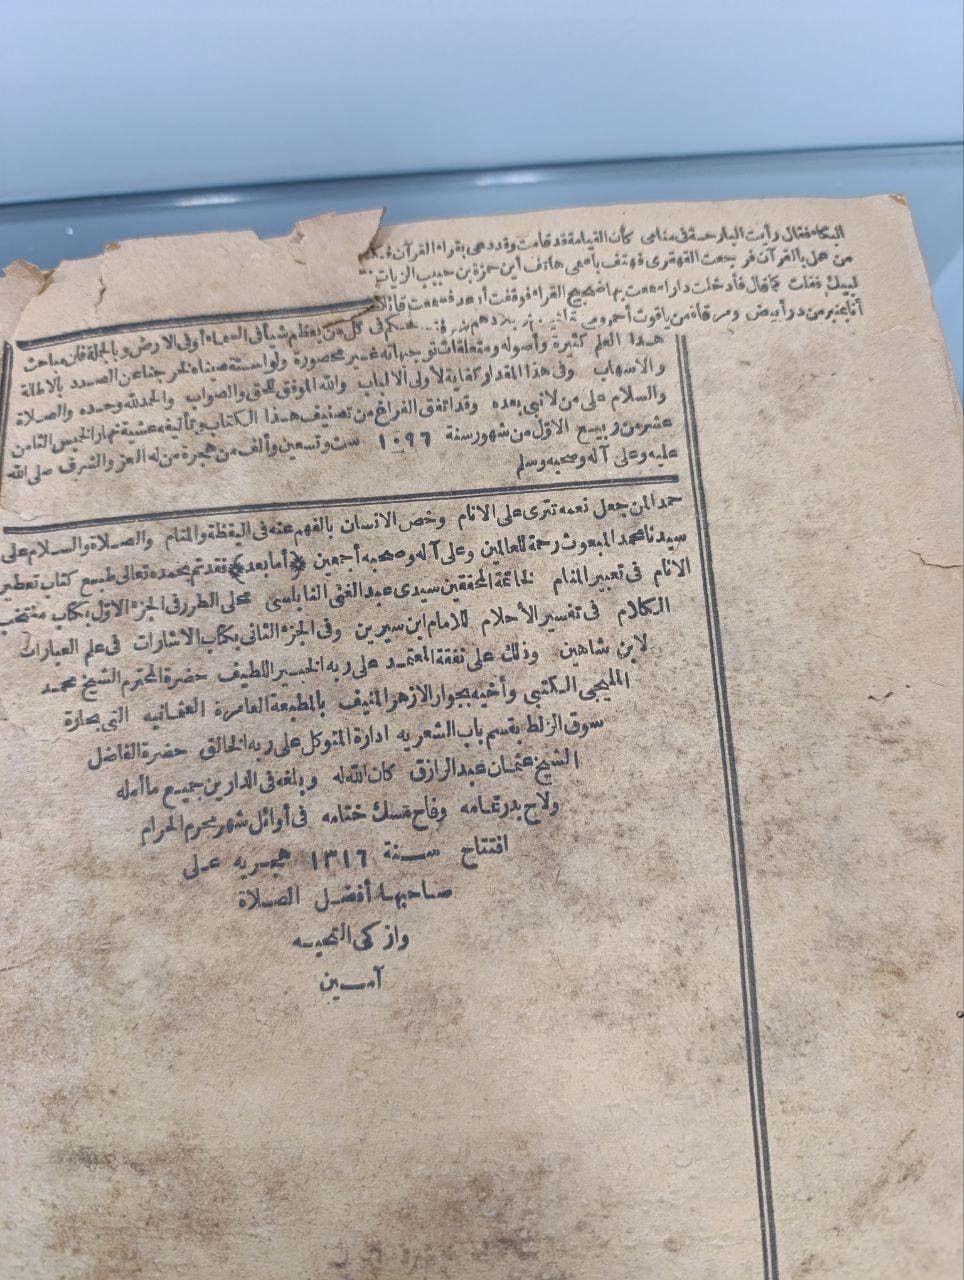 البكاء فقال رأيت البارحة في منامى كأن القيامة قد قامت وقد دعى بقراء القرآن
من عمل بالقرآن فرجعت القهقرى فهتف باسمى هاتف أين حمزة بن حبيب الزيات
لبيك فقلت كما قال فأدخلت دارا سمعت بها ضجيج القراء فوقفت أرعد فسمعت قائلا
من در أبيض ومرقاة من ياقوت أحمر
هذا العلم كثيرة وأصوله ومتعلقات توجيهاته غير محصورة ولو استقصيناه لخرجنا عن الصدد بالاطالة
والاسهاب وفى هذا المقدار كفاية لأولى الالباب والله الموفق للحق والصواب والحمد لله وحده والصلاة
والسلام على من لا نبى بعده وقد اتفق الفراغ من تصنيف هذا الكتاب وتأليفه عشية نهار الخميس الثامن
عشر من ربيع الاول من شهور سنة ١٠٩٦ ست وتسعين وألف من هجرة من له العز والشرف صلى الله
عليه وعلى آله وصحبه وسلم
حمدا لمن جعل نعمه تترى على الانام وخص الانسان بالفهم عنه فى اليقظة والمنام والصلاة والسلام على
سيدنا محمد المبعوث رحمة للعالمين وعلى آله وصحبه أجمعين ﴿أما بعد﴾ فقد تم بحمده تعالى طبع كتاب تعطير
الانام فى تعبير المنام لخاتمة المحققين سيدى عبد الغنى النابلسى محلى الطرر فى الجزء الاول بكتاب منتخب
الكلام فى تفسير الأحلام للامام ابن سيرين وفى الجزء الثانى بكتاب الاشارات فى علم العبارات
لابن شاهين وذلك على نفقة المعتمد على ربه الخبير اللطيف حضرة المحترم الشيخ محمد
المليجى الكتبى وأخيه بجوار الازهر المنيف بالمطبعة العامرة العثمانيه التى بحارة
سوق الزلط بقسم باب الشعريه ادارة المتوكل على ربه الخالق حضرة الفاضل
الشيخ عثمان عبد الرازق كان الله له وبلغه فى الدارين جميع ما أمله
ولاح بدر تمامه وفاح مسك ختامه فى أوائل شهر محرم الحرام
افتتاح سنة ١٣١٦ هجريه على
صاحبها أفضل الصلاة
وازكى التحيه
آمين